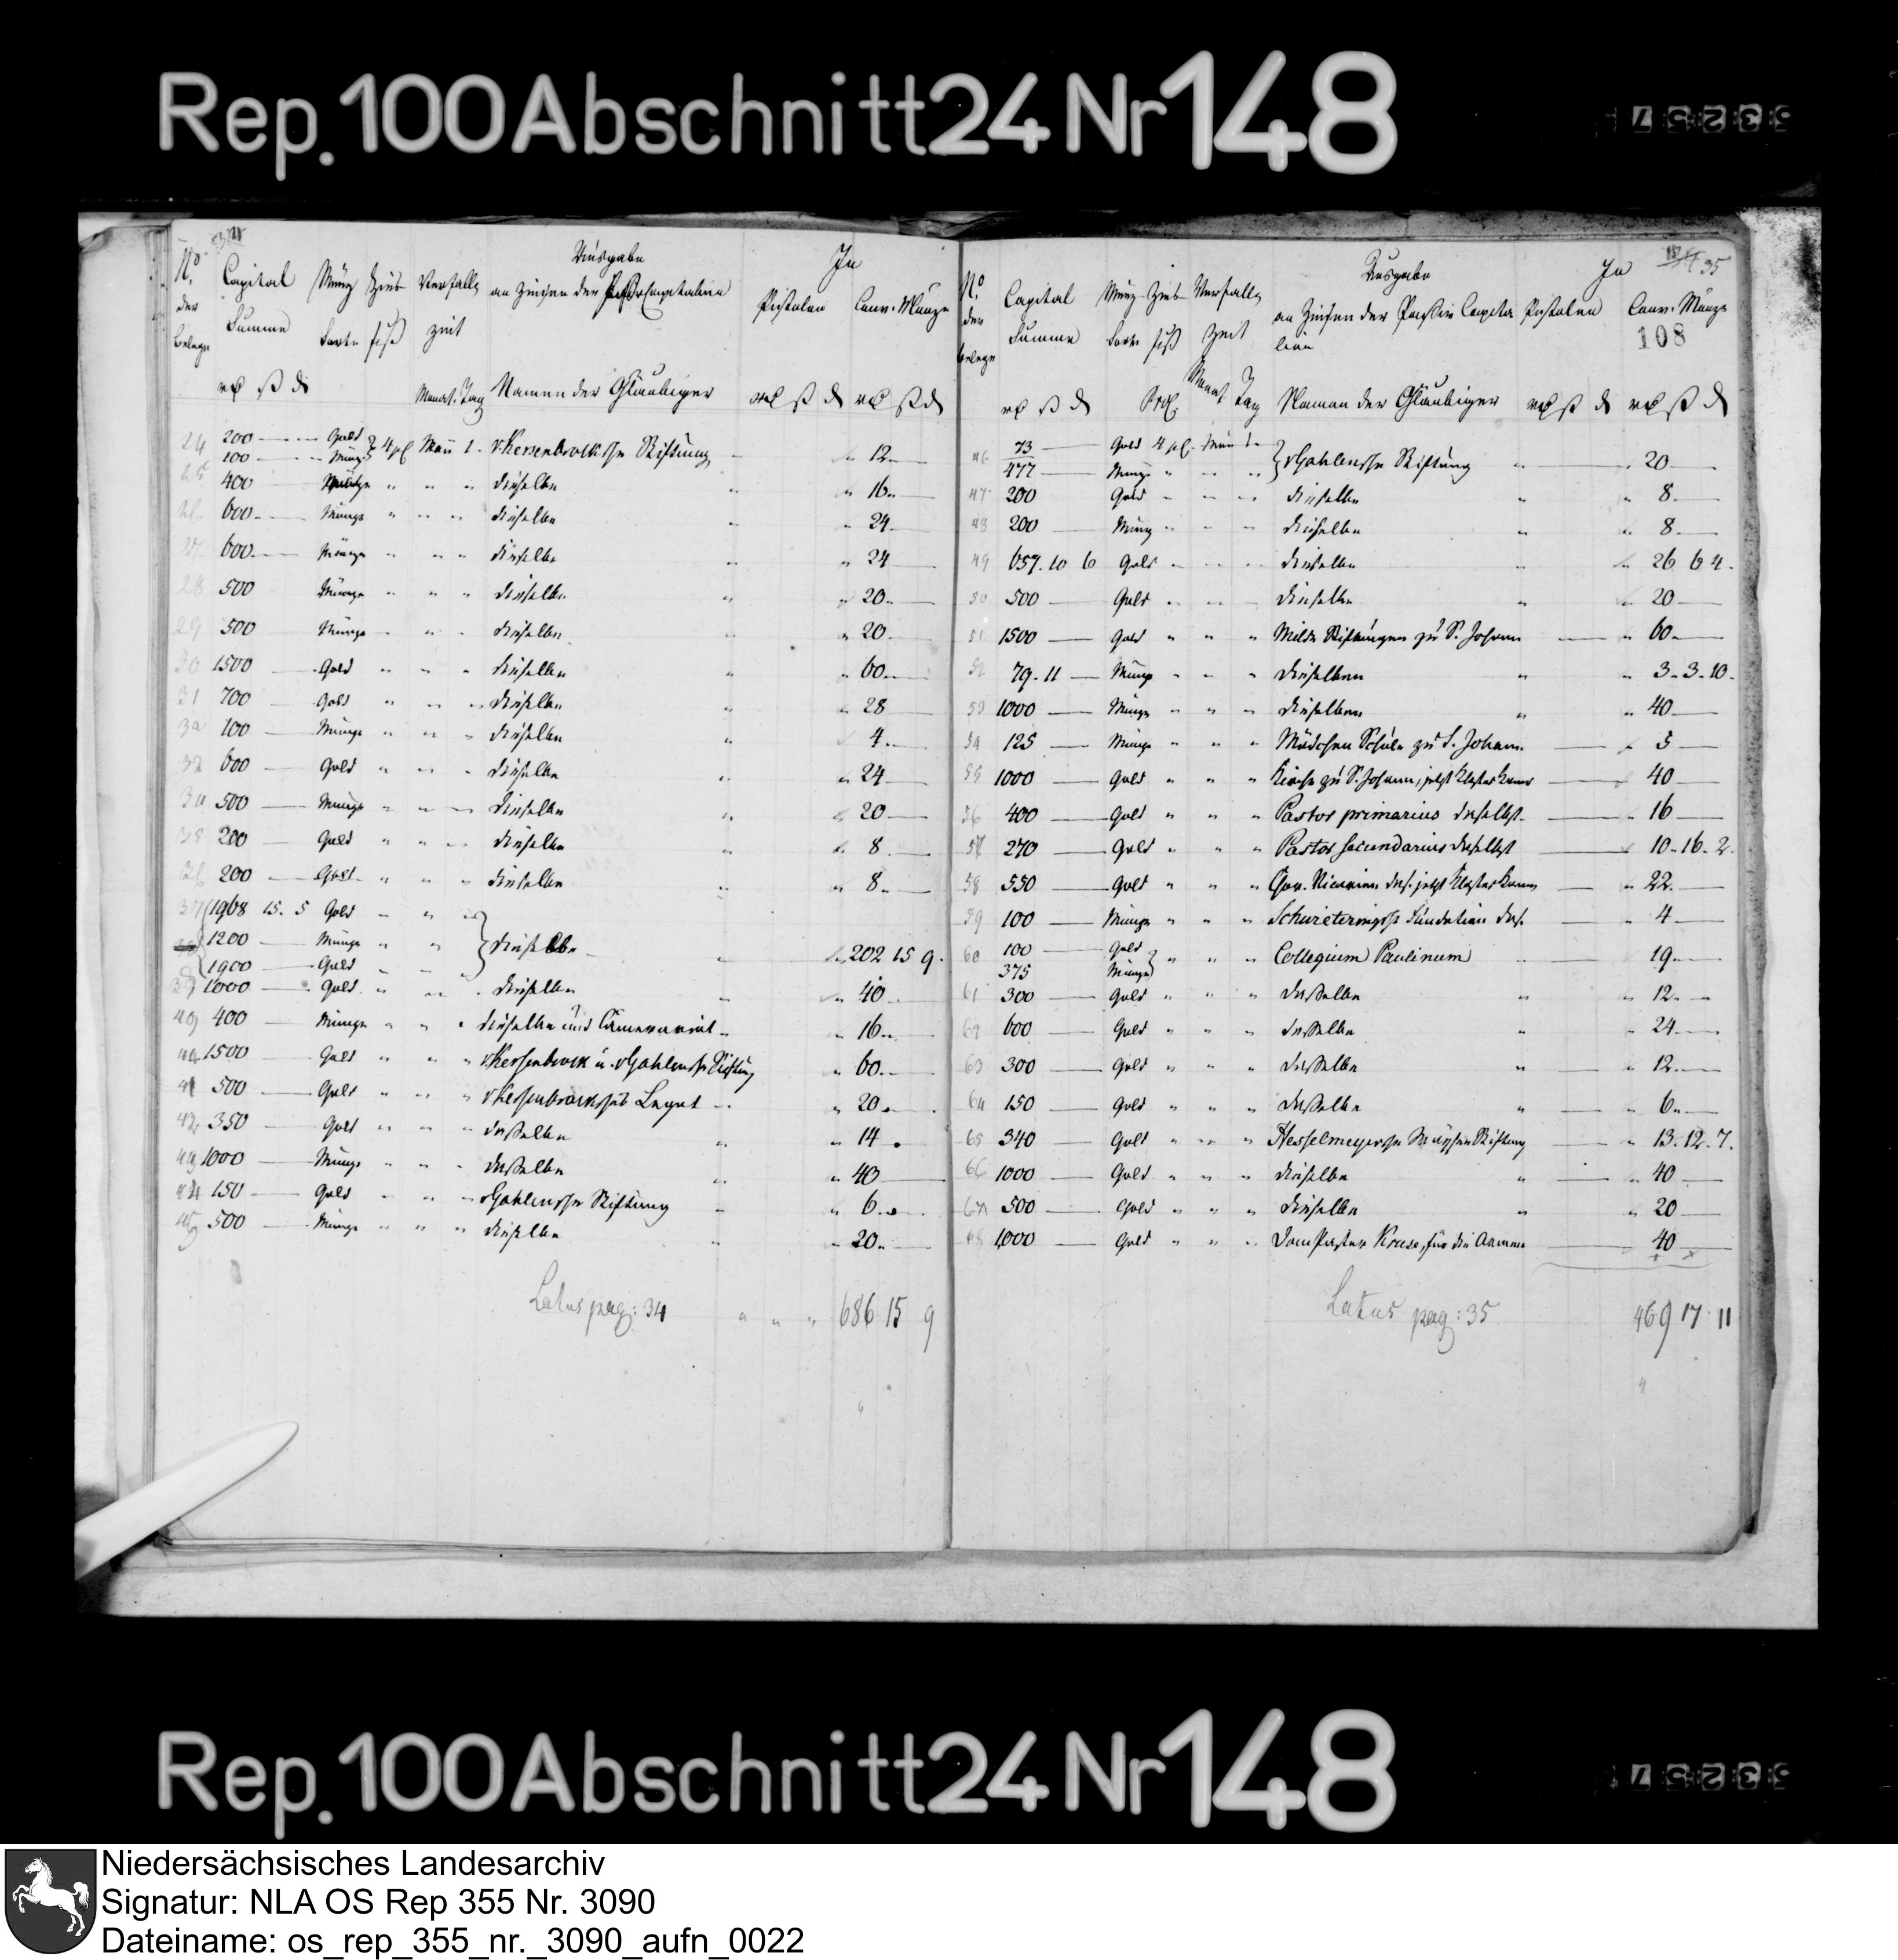 Rep. 100 Abschnitt 24 Nr 148
No. der Belege Capital Summe Münz Sorte Zins fuß Verfall zeit Ausgabe an Zinsen der Passiv Capitalien In Pistolen Conv. Münze
Monat. Tag Namen der Gläubiger
24 200 Gold 4 pC Mai 1. v. Kerssenbrocksche Stiftung 12
100 Münze
25 400 Münze " " " dieselbe " " 16
26 600 Münze " " " dieselbe " " 24
27 600 Münze " " " dieselbe " " 24
28 500 Münze " " " dieselbe " " 20
29 500 Münze " " " dieselbe " " 20
30 1500 Gold " " " dieselbe " " 60
31 700 Gold " " " dieselbe " " 28
32 100 Münze " " " dieselbe " " 4
33 600 Gold " " " dieselbe " " 24
34 500 Münze " " " dieselbe " " 20
35 200 Gold " " " dieselbe " " 8
36 200 Gold " " " dieselbe " " 8
37 1968 15. 5 Gold " " "
1200 Münze " " dieselbe 202 15 9.
1900 Gold " "
39 1000 Gold " " " dieselbe " " 40
40 400 Münze " " " dieselbe und Cämmerariat " 16
1500 Gold " " " v. Kerssenbrock u. v Gahlensche Stiftung " 60
41 500 Gold " " " v Kerssenbrocksches Legat " 20
42 350 Gold " " " dasselbe " " 14
43 1000 Münze " " " dasselbe " " 40
44 150 Gold " " " v Gahlensche Stiftung " " 6
45 500 Münze " " " dieselbe " " 20
Latus pag: 34 " " " 686 15 9
35
108
No. der Belege Capital Summe Münz Sorte Zins fuß Verfall zeit Ausgabe an Zinsen der Passiv Capita lien In Pistolen Conv. Münze
ProC. Monat Tag Namen der Gläubiger
46 73 Gold 4 pC. Mai 1. v Gahlensche Stiftung " 20
477 Münze " " "
47 200 Gold " " " dieselbe " " 8
48 200 Münz " " " dieselbe " " 8
49 657. 10 6 Gold " " " dieselbe " " 26 6 4.
50 500 Gold " " " dieselbe " " 20
51 1500 Gold " " " Milde Stiftungen zu S. Johann " 60
52 79. 11 Münze " " " dieselben " " 3. 3. 10.
53 1000 Münze " " " dieselben " " 40
54 125 Münze " " " Mädchen Schule zu S. Johann " 5
55 1000 Gold " " " Kirche zu S. Johann, jetzt Klosterkammer 40
56 400 Gold " " " Pastor primarius daselbst " 16
57 270 Gold " " " Pastor secundarius daselbst 10. 16. 2.
58 550 Gold " " " das. jetzt Klosterkammer " 22
59 100 Münze " " " Schwietering'sche Fundation das. " 4
60 100 Gold " " " Collegium Paulinum " 19
375 Münze
61 300 Gold " " " dasselbe " " 12
62 600 Gold " " " dasselbe " " 24
63 300 Gold " " " dasselbe " " 12
64 150 Gold " " " dasselbe " " 6
65 340 Gold " " " Hesselmeyersche Stiftung " 13. 12. 7.
66 1000 Gold " " " dieselbe " " 40
67 500 Gold " " " dieselbe " " 20
68 1000 Gold " " " Dom Pastor Kruse, für die Armen 40
Latus pag: 35 469 17 11
Rep. 100 Abschnitt 24 Nr 148
Niedersächsisches Landesarchiv
Signatur: NLA OS Rep 355 Nr. 3090
Dateiname: os_rep_355_nr._3090_aufn_0022